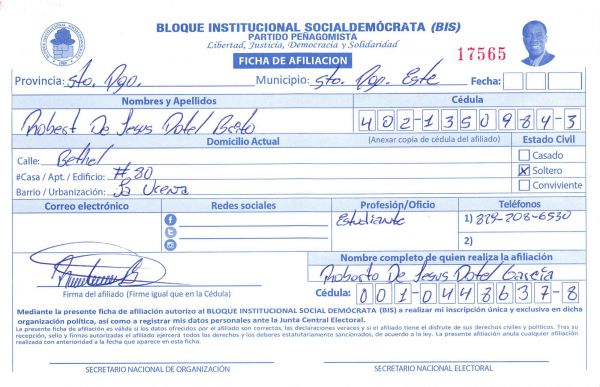 BLOQUE INSTITUCIONAL SOCIALDEMÓCRATA (BIS)
PARTIDO PEÑAGOMISTA
Libertad, Justicia, Democracia y Solidaridad
FICHA DE AFILIACION
17565
Provincia: Sto. Dgo. Municipio: Sto. Dgo. Este Fecha:
Nombres y Apellidos Cédula
Robert De Jesus Dotel Brito 402-1350984-3
Domicilio Actual (Anexar copia de cédula del afiliado) Estado Civil
Calle: Bethel Casado
#Casa / Apt. / Edificio: #30 X Soltero
Barrio / Urbanización: La Ucersa Conviviente
Correo electrónico Redes sociales Profesión/Oficio Teléfonos
Estudiante 1) 829-208-6530
2)
Nombre completo de quien realiza la afiliación
Roberto De Jesus Dotel García
Firma del afiliado (Firme igual que en la Cédula) Cédula: 001-0448637-8
Mediante la presente ficha de afiliación autorizo al BLOQUE INSTITUCIONAL SOCIAL DEMÓCRATA (BIS) a realizar mi inscripción única y exclusiva en dicha
organización política, así como a registrar mis datos personales ante la Junta Central Electoral.
La presente ficha de afiliación es válida si los datos ofrecidos por el afiliado son correctos, las declaraciones veraces y si el afiliado tiene el disfrute de sus derechos civiles y políticos. Tras su
recepción, sello y firmas autorizadas el afiliado ejercerá todos los derechos y los deberes estatutariamente sancionados, de acuerdo a la ley. La presente afiliación anula cualquier afiliación
realizada con anterioridad a la fecha que aparece en esta ficha.
SECRETARIO NACIONAL DE ORGANIZACIÓN SECRETARIO NACIONAL ELECTORAL